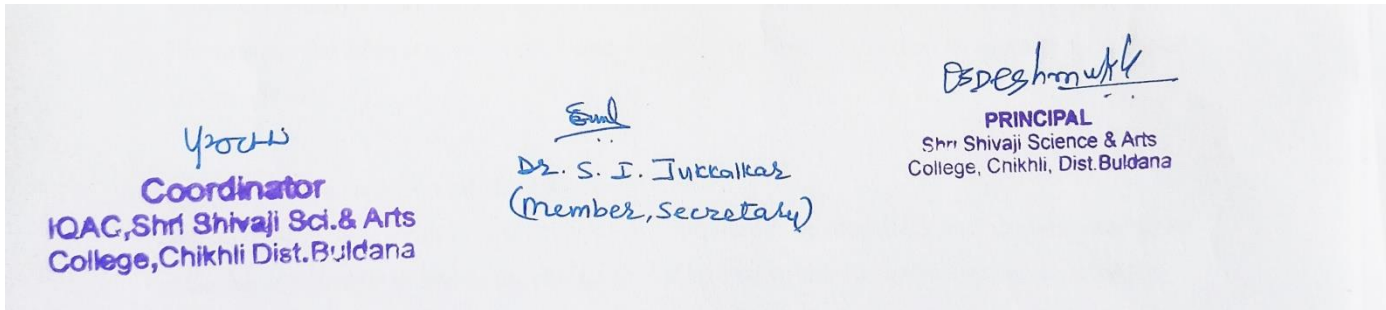 Coordinator
IQAC,Shri Shivaji Sci.& Arts
College,Chikhli Dist.Buldana
Dr. S. I. Jukkalkar
(Member, Secretary)
DSDeshmukh
PRINCIPAL
Shri Shivaji Science & Arts
College, Chikhli, Dist.Buldana